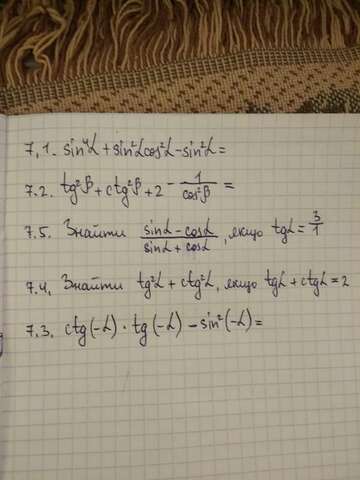 7.1. sin⁴α + sin²α cos²α - sin²α =
7.2. tg²β + ctg²β + 2 - 1/cos²β =
7.5. Знайти (sinα - cosα)/(sinα + cosα), якщо tgα = 3/1
7.4. Знайти tg²α + ctg²α, якщо tgα + ctgα = 2
7.3. ctg(-α) · tg(-α) - sin²(-α) =